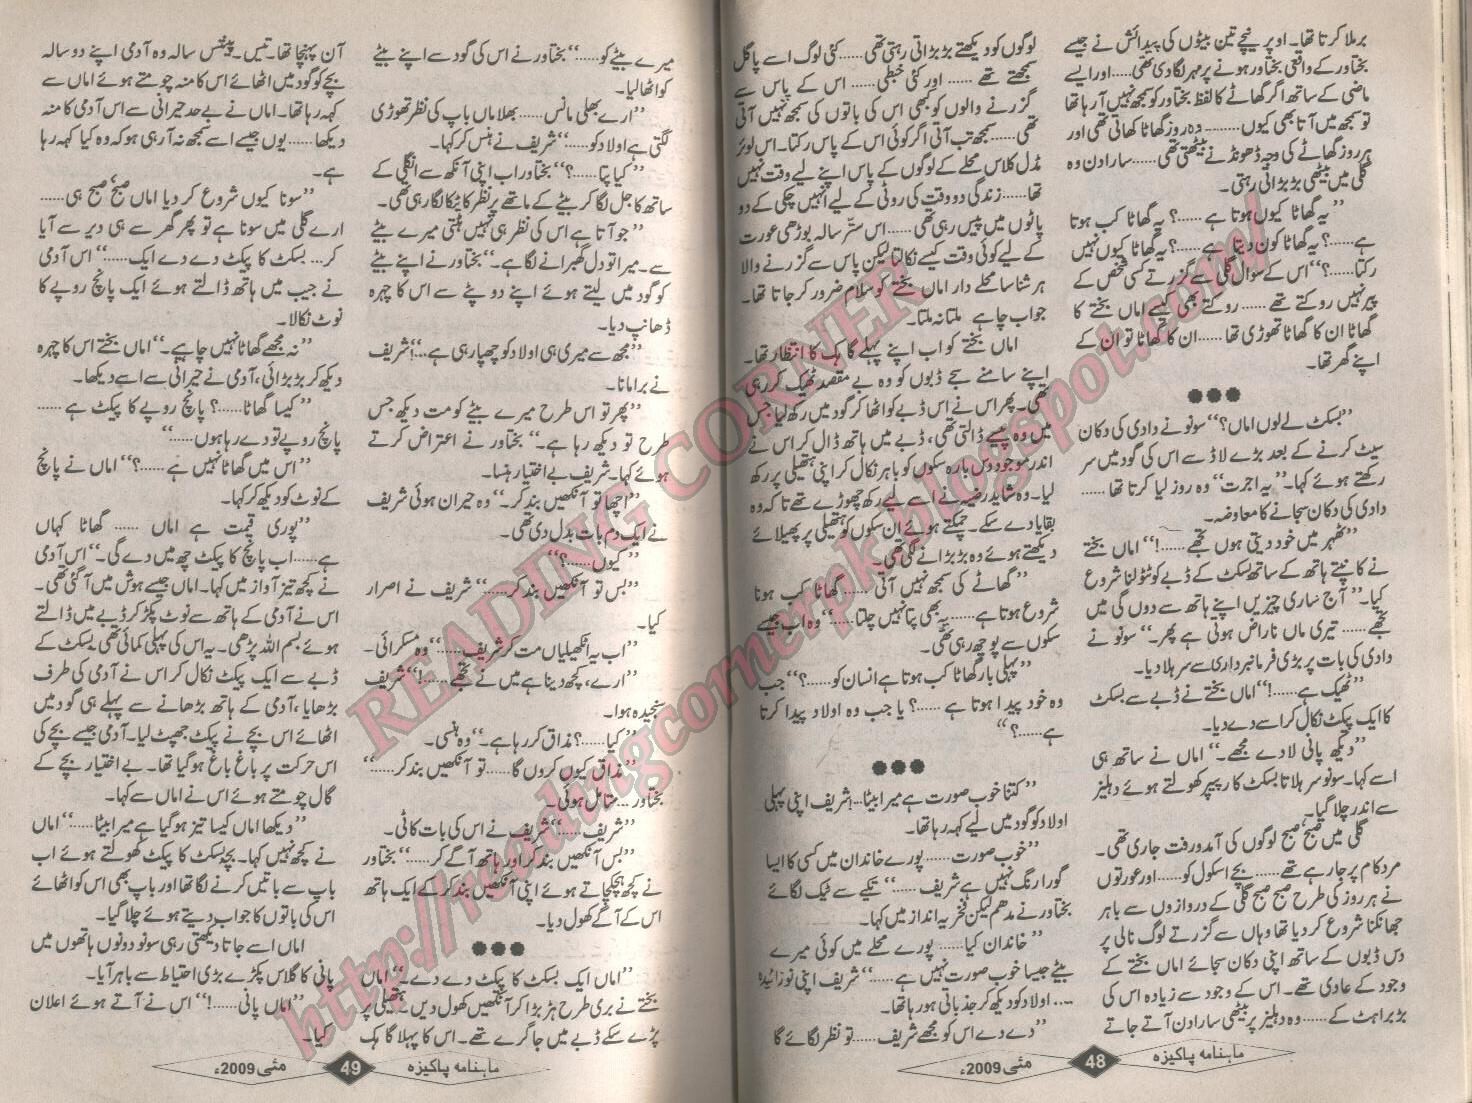 برملا کرتا تھا۔ اوپر نیچے تین بیٹوں کی پیدائش نے جیسے
بختاور کے واقعی بختاور ہونے پر مہر لگا دی تھی...... اور ایسے
ماضی کے ساتھ اگر گھاٹے کا لفظ بختاور کو سمجھ نہیں آ رہا تھا
تو سمجھ میں آتا بھی کیوں......... وہ روز گھاٹا کھاتی تھی اور
ہر روز گھاٹے کی وجہ ڈھونڈنے بیٹھتی تھی...... سارا دن وہ
گلی میں بیٹھی بڑبڑاتی رہتی۔
’’یہ گھاٹا کیوں ہوتا ہے......؟ یہ گھاٹا کب ہوتا
ہے......؟ یہ گھاٹا کون دیتا ہے......؟ یہ گھاٹا کیوں نہیں
رکتا......؟‘‘ اس کے سوال گلی سے گزرتے کسی شخص کے
پیر نہیں روکتے تھے...... روکتے بھی کیسے اماں بختے کا
گھاٹا ان کا گھاٹا تھوڑی تھا...... ان کا گھاٹا تو ان کے
اپنے گھر تھا۔
’’بسکٹ لے لوں اماں؟‘‘ سونو نے دادی کی دکان
سیٹ کرنے کے بعد بڑے لاڈ سے اس کی گود میں سر
رکھتے ہوئے کہا۔ ’’یہ اجرت‘‘ وہ روز لیا کرتا تھا......
دادی کی دکان سجانے کا معاوضہ۔
’’ٹھہر میں خود دیتی ہوں تجھے......!‘‘ اماں بختے
نے کانپتے ہاتھ کے ساتھ بسکٹ کے ڈبے کو ٹٹولنا شروع
کیا۔ ’’آج ساری چیزیں اپنے ہاتھ سے دوں گی میں
تجھے...... تیری ماں ناراض ہوتی ہے پھر۔‘‘ سونو نے
دادی کی بات پر بڑی فرمانبرداری سے سر ہلا دیا۔
’’ٹھیک ہے......!‘‘ اماں بختے نے ڈبے سے بسکٹ
کا ایک پیکٹ نکال کر اسے دے دیا۔
’’دیکھ پانی لا دے مجھے۔‘‘ اماں نے ساتھ ہی
اسے کہا۔ سونو سر ہلاتا بسکٹ کا ریپر کھولتے ہوئے دہلیز
سے اندر چلا گیا۔
گلی میں صبح صبح لوگوں کی آمدورفت جاری تھی۔
مرد کام پر جا رہے تھے...... بچے اسکول کو...... اور عورتوں
نے ہر روز کی طرح صبح صبح گلی کے دروازوں سے باہر
جھانکنا شروع کر دیا تھا وہاں سے گزرتے لوگ نالی پر
دس ڈبوں کے ساتھ اپنی دکان سجائے اماں بختے کے
وجود کے عادی تھے۔ اس کے وجود سے زیادہ اس کی
بڑبڑاہٹ کے...... وہ دہلیز پر بیٹھی سارا دن آتے جاتے
ماہنامہ پاکیزہ 48 مئی 2009ء
لوگوں کو دیکھتے بڑبڑاتی رہتی تھی...... کئی لوگ اسے پاگل
سمجھتے تھے...... اور کئی خبطی...... اس کے پاس سے
گزرنے والوں کو بھی اس کی باتوں کی سمجھ نہیں آتی
تھی...... سمجھ تب آتی اگر کوئی اس کے پاس رکتا۔ اس لوئر
مڈل کلاس محلے کے لوگوں کے پاس اپنے لیے وقت نہیں
تھا...... زندگی دو وقت کی روٹی کے لیے انہیں چکی کے دو
پاٹوں میں پیس رہی تھی...... اس ستر سالہ بوڑھی عورت
کے لیے کوئی وقت کیسے نکالتا لیکن پاس سے گزرنے والا
ہر شناسا محلے دار اماں بختے کو سلام ضرور کر جاتا تھا۔
جواب چاہے ملتا نہ ملتا۔
اماں بختے کو اب اپنے پہلے گاہک کا انتظار تھا۔
اپنے سامنے سجے ڈبوں کو وہ بے مقصد ٹھیک کر رہی
تھی۔ پھر اس نے اس ڈبے کو اٹھا کر گود میں رکھ لیا جس
میں وہ پیسے ڈالتی تھی، ڈبے میں ہاتھ ڈال کر اس نے
اندر موجود دس بارہ سکوں کو باہر نکال کر اپنی ہتھیلی پر رکھ
لیا۔ وہ شاید رضیہ نے اسے لیے رکھ چھوڑے تھے تاکہ وہ
بقایا دے سکے۔ چمکتے ہوئے ان سکوں کو ہتھیلی پر پھیلائے
دیکھتے ہوئے وہ بڑبڑانے لگی تھی۔
’’گھاٹے کی سمجھ نہیں آتی...... گھاٹا کب ہونا
شروع ہوتا ہے...... یہ بھی پتا نہیں چلتا......‘‘ وہ اب جیسے
سکوں سے پوچھ رہی تھی۔
’’پہلی بار گھاٹا کب ہوتا ہے انسان کو......؟‘‘ جب
وہ خود پیدا ہوتا ہے......؟ یا جب وہ اولاد پیدا کرتا
ہے......؟‘‘
’’کتنا خوب صورت ہے میرا بیٹا...‘‘ شریف اپنی پہلی
اولاد کو گود میں لیے کہہ رہا تھا۔
’’خوب صورت...... پورے خاندان میں کسی کا ایسا
گورا رنگ نہیں ہے شریف......‘‘ تکیے سے ٹیک لگائے
بختاور نے مدھم لیکن فخریہ انداز میں کہا۔
’’خاندان کیا...... پورے محلے میں کوئی میرے
بیٹے جیسا خوب صورت نہیں ہے......‘‘ شریف اپنی نوزائیدہ
.... اولاد کو دیکھ کر جذباتی ہو رہا تھا۔
’’دے دے اس کو مجھے شریف...... تو نظر لگائے گا
میرے بیٹے کو......‘‘ بختاور نے اس کی گود سے اپنے بیٹے
کو اٹھا لیا۔
’’ارے بھلی مانس...... بھلا ماں باپ کی نظر تھوڑی
لگتی ہے اولاد کو......‘‘ شریف نے ہنس کر کہا۔
’’کیا پتا......؟‘‘ بختاور اب اپنی آنکھ سے انگلی کے
ساتھ کاجل لگا کر بیٹے کے ماتھے پر نظر کا ٹیکا لگا رہی تھی۔
’’جو آتا ہے اس کی نظر ہی نہیں ہٹتی میرے بیٹے
سے۔ میرا تو دل گھبرانے لگا ہے۔‘‘ بختاور نے اپنے بیٹے
کو گود میں لیتے ہوئے اپنے دوپٹے سے اس کا چہرہ
ڈھانپ دیا۔
’’مجھ سے میری ہی اولاد کو چھپا رہی ہے...‘‘ شریف
نے برا مانا۔
’’پھر تو اس طرح میرے بیٹے کو مت دیکھ جس
طرح تو دیکھ رہا ہے۔‘‘ بختاور نے اعتراض کرتے
ہوئے کہا۔ شریف بے اختیار ہنسا۔
’’اچھا تو آنکھیں بند کر۔‘‘ وہ حیران ہوئی شریف
نے ایک دم بات بدل دی تھی۔
’’کیوں......؟‘‘
’’بس تو آنکھیں بند کر......‘‘ شریف نے اصرار
کیا۔
’’اب یہ اٹکھیلیاں مت کر شریف......‘‘ وہ مسکرائی۔
’’ارے، کچھ دینا ہے میں نے تجھے...!‘‘ شریف
سنجیدہ ہوا۔
’’کیا......؟ مذاق کر رہا ہے۔‘‘ وہ ہنسی۔
’’مذاق کیوں کروں گا...... تو آنکھیں بند کر......‘‘
بختاور... متامل ہوئی۔
’’شریف......‘‘ شریف نے اس کی بات کاٹی۔
’’بس آنکھیں بند کر اور ہاتھ آگے کر......‘‘ بختاور
نے کچھ ہچکچاتے ہوئے اپنی آنکھیں بند کر کے ایک ہاتھ
اس کے آگے کھول دیا۔
’’اماں ایک بسکٹ کا پیکٹ دے دے۔‘‘ اماں
بختے نے بری طرح ہڑبڑا کر آنکھیں کھول دیں۔ ہتھیلی پر
پڑے سکے ڈبے میں جا گرے تھے۔ اس کا پہلا گاہک
آن پہنچا تھا۔ تیس۔ پینتیس سالہ وہ آدمی اپنے دو سالہ
بچے کو گود میں اٹھائے اس کا منہ چومتے ہوئے اماں سے
کہہ رہا تھا۔ اماں نے بے حد حیرانی سے اس آدمی کا منہ
دیکھا...... یوں جیسے اسے سمجھ نہ آ رہی ہو کہ وہ کیا کہہ رہا
ہے۔
’’سونا کیوں شروع کر دیا اماں صبح صبح ہی......
ارے گلی میں سونا ہے تو پھر گھر سے ہی دیر سے آیا
کر... بسکٹ کا پیکٹ دے دے ایک......‘‘ اس آدمی
نے جیب میں ہاتھ ڈالتے ہوئے ایک پانچ روپے کا
نوٹ نکالا۔
’’نہ مجھے گھاٹا نہیں چاہیے۔‘‘ اماں بختے اس کا چہرہ
دیکھ کر بڑبڑائی، آدمی نے حیرانی سے اسے دیکھا۔
’’کیسا گھاٹا......؟ پانچ روپے کا پیکٹ ہے......
پانچ روپے تو دے رہا ہوں......‘‘
’’اس میں گھاٹا نہیں ہے......؟‘‘ اماں نے پانچ
کے نوٹ کو دیکھ کر کہا۔
’’پوری قیمت ہے اماں...... گھاٹا کہاں
ہے...... اب پانچ کا پیکٹ چھ میں دے گی۔‘‘ اس آدمی
نے کچھ تیز آواز میں کہا۔ اماں جیسے ہوش میں آ گئی تھی۔
اس نے آدمی کے ہاتھ سے نوٹ پکڑ کر ڈبے میں ڈالتے
ہوئے بسم اللہ پڑھی۔ یہ اس کی پہلی کمائی تھی بسکٹ کے
ڈبے سے ایک پیکٹ نکال کر اس نے آدمی کی طرف
بڑھایا، آدمی کے ہاتھ بڑھانے سے پہلے ہی گود میں
اٹھائے اس بچے نے پیکٹ جھپٹ لیا۔ آدمی جیسے بچے کی
اس حرکت پر باغ باغ ہو گیا تھا۔ بے اختیار بچے کے
گال چومتے ہوئے اس نے اماں سے کہا۔
’’دیکھا اماں کیسا تیز ہو گیا ہے میرا بیٹا......‘‘ اماں
نے کچھ نہیں کہا۔ بچہ بسکٹ کا پیکٹ کھولتے ہوئے اب
باپ سے باتیں کرنے لگا تھا اور باپ بھی اس کو اٹھائے
اس کی باتوں کا جواب دیتے ہوئے چلا گیا۔
اماں اسے جاتا دیکھتی رہی سونو دونوں ہاتھوں میں
پانی کا گلاس پکڑے بڑی احتیاط سے باہر آیا۔
’’اماں پانی......!‘‘ اس نے آتے ہوئے اعلان
کیا۔
ماہنامہ پاکیزہ 49 مئی 2009ء
READING CORNER
http://readingcornerpk.blogspot.com/